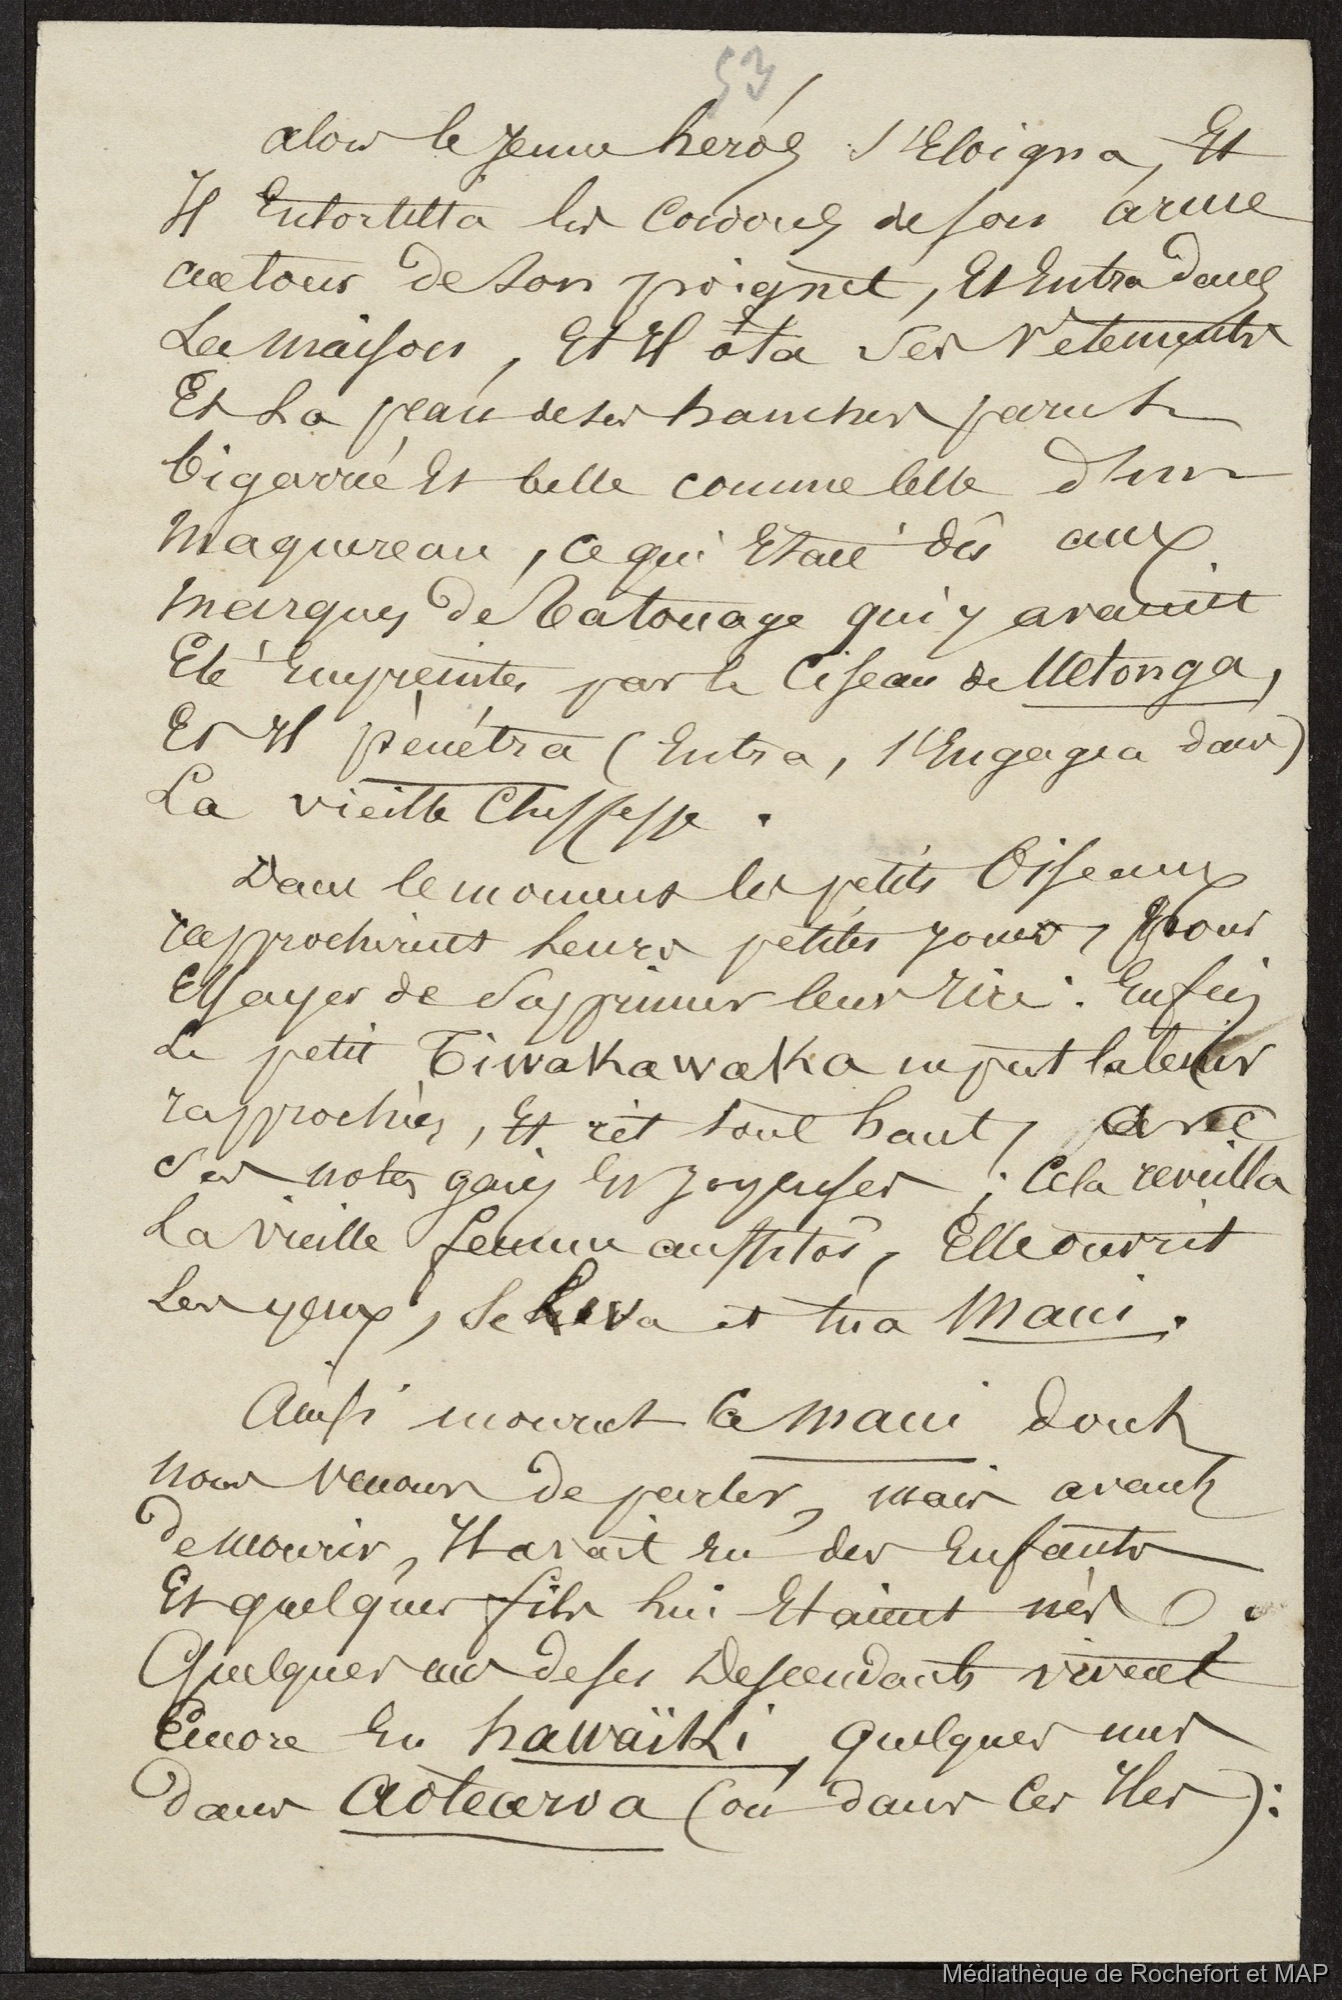 53
alors le jeune heros s'Eloigna, Et
Il Entortilla les Cordons de son arme
autour de son poignet, Et Entra dans
La maison, Et Il ôta Ses Vetements
Et La peau de ses hanches parut
bigarrée Et belle comme celle d'un
Maquereau, ce qui Etait dû aux
marques de Tatouage qui y avaient
Eté Empreintes par le Ciseau de Uetonga,
Et Il pénétra (Entra, s'Engagea dans)
La vieille Cheffesse.
Dans le moment les petits Oiseaux
rapprochèrent leurs petites joues, pour
Essayer de Supprimer leur rire. Enfin
Le petit Tiwakawaka ne put les tenir
rapprochées, Et rit tout haut, avec
Ses notes gaies Et joyeuses ; Cela reveilla
La vieille femme aussitôt, Elle ouvrit
Les yeux, se leva et tua Maui.
Ainsi mourut ce Maui dont
nous venons de parler, mais avant
de mourir, Il avait eu des Enfants
Et quelques fils lui Etaient nés ;
Quelques uns de ses Descendants vivent
Encore En hawaïki, quelques uns
dans aotearoa (ou dans ces Iles) :
Médiathèque de Rochefort et MAP